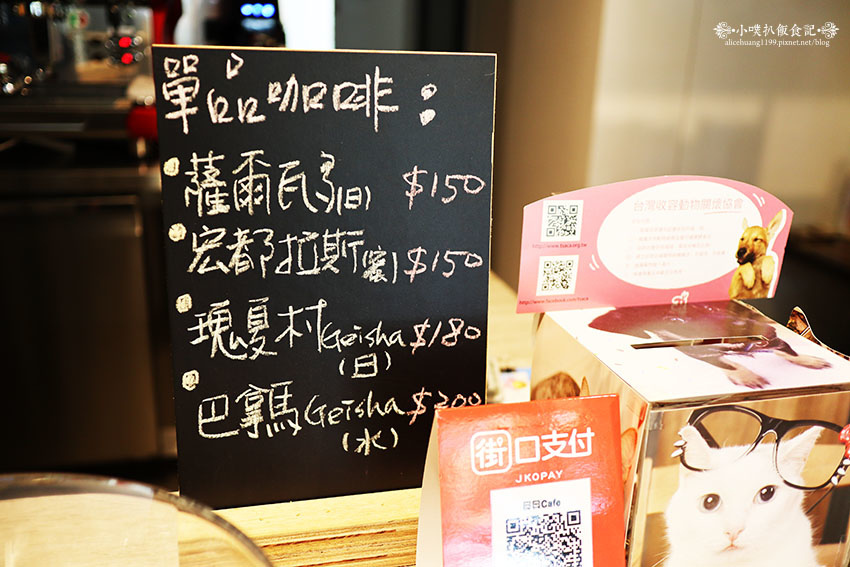 小噗扒飯食記
alicehuang1199.pixnet.net/blog
單品咖啡：
薩爾瓦多(日) $150
宏都拉斯(蜜) $150
瑰夏村Geisha $180
(日)
巴拿馬Geisha $200
(水)
台灣收容動物關懷協會
http://www.tsaca.org.tw
街口支付
JKOPAY
日日Cafe